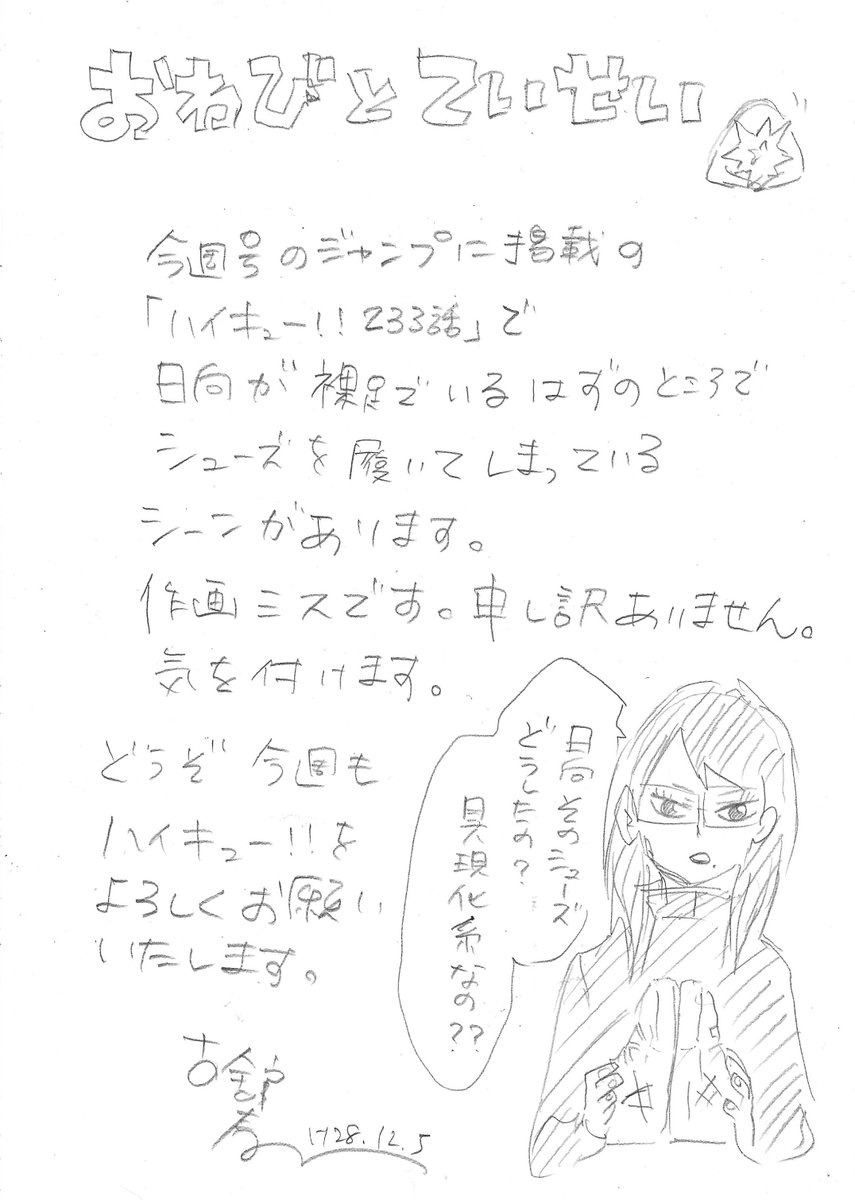 おわびとていせい
今週号のジャンプに掲載の
「ハイキュー!!233話」で
日向が裸足でいるはずのところで
シューズを履いてしまっている
シーンがあります。
作画ミスです。申し訳ありません。
気を付けます。
どうぞ今週も
ハイキュー!!を
よろしくお願い
いたします。
日向そのシューズ
どうしたの?
具現化系なの??
古舘
H28.12.5